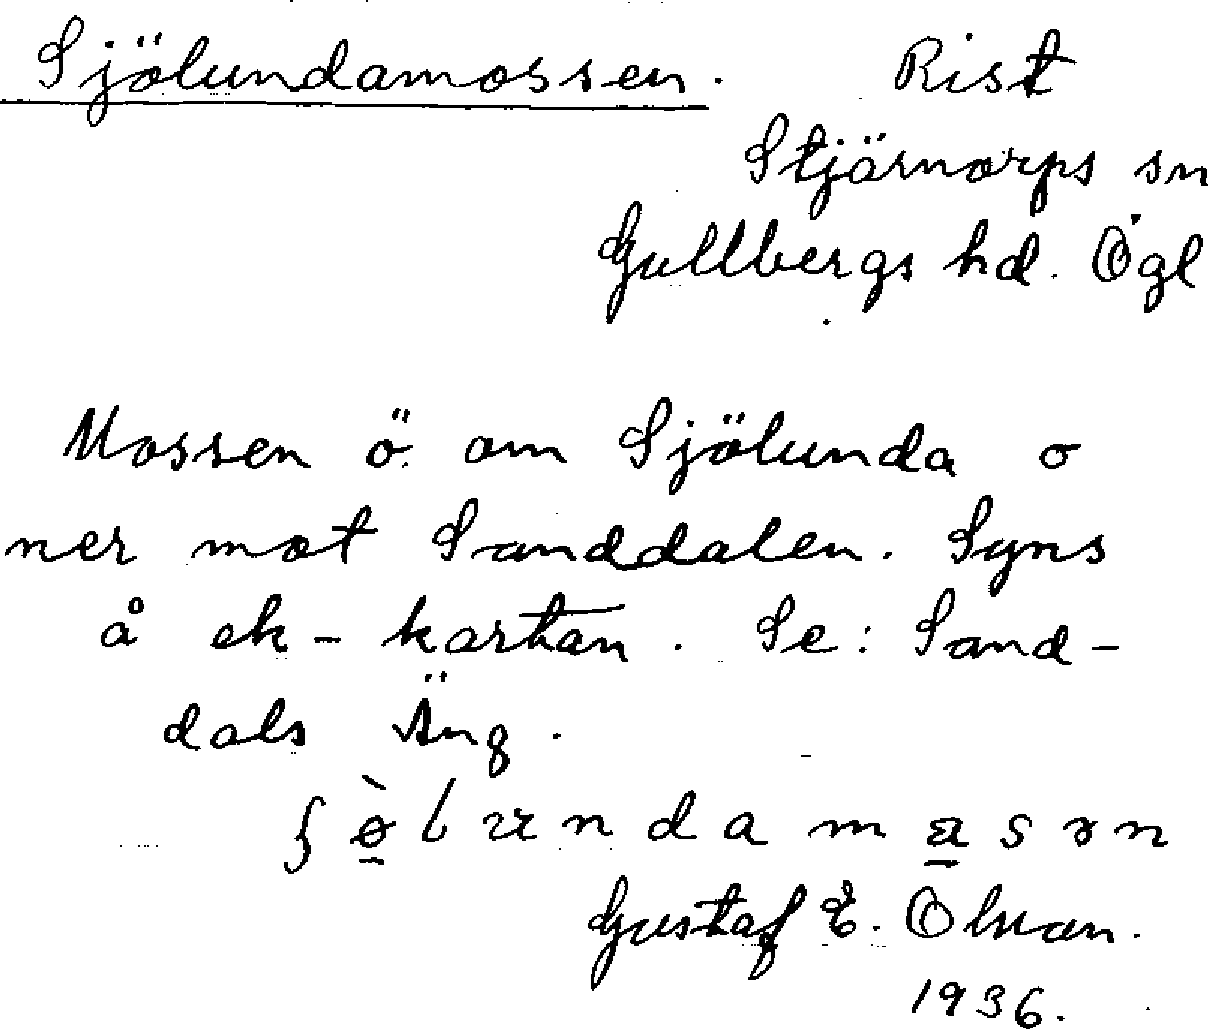 Sjölundamossen. Rist
Stjärnorps sn
Gullbergs hd. Ögl
Mossen ö. om Sjölunda o
ner mot Sanddalen. Syns
å ek-kartan. Se: Sand-
dals Äng.
Gustaf E. Olvan.
1936.